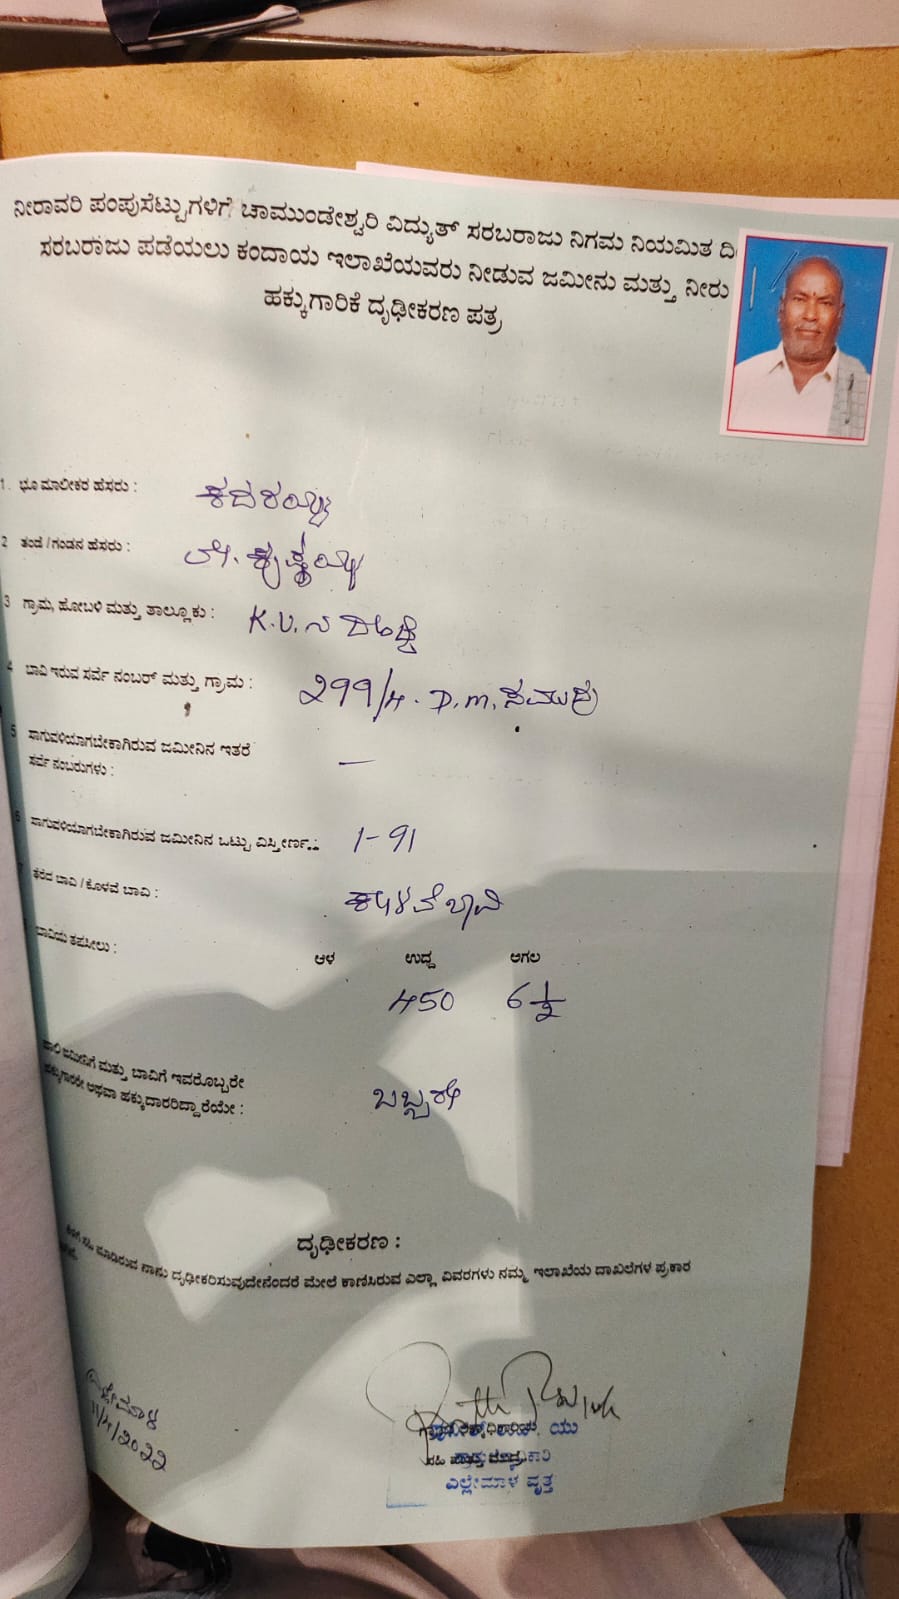 ನೀರಾವರಿ ಪಂಪುಸೆಟ್ಟುಗಳಿಗೆ ಚಾಮುಂಡೇಶ್ವರಿ ವಿದ್ಯುತ್ ಸರಬರಾಜು ನಿಗಮ ನಿಯಮಿತ
ಸರಬರಾಜು ಪಡೆಯಲು ಕಂದಾಯ ಇಲಾಖೆಯವರು ನೀಡುವ ಜಮೀನು ಮತ್ತು ನೀರು
ಹಕ್ಕುಗಾರಿಕೆ ದೃಢೀಕರಣ ಪತ್ರ
1. ಭೂ ಮಾಲೀಕರ ಹೆಸರು :
2 ತಂದೆ / ಗಂಡನ ಹೆಸರು :
3 ಗ್ರಾಮ, ಹೋಬಳಿ ಮತ್ತು ತಾಲ್ಲೂಕು : K.V.ನ ದೊಡ್ಡಿ
4 ಬಾವಿ ಇರುವ ಸರ್ವೆ ನಂಬರ್ ಮತ್ತು ಗ್ರಾಮ : 299/4. D.M. ಸಮುದ್ರ
5 ಸಾಗುವಳಿಯಾಗಬೇಕಾಗಿರುವ ಜಮೀನಿನ ಇತರೆ
ಸರ್ವೆ ನಂಬರುಗಳು : —
6 ಸಾಗುವಳಿಯಾಗಬೇಕಾಗಿರುವ ಜಮೀನಿನ ಒಟ್ಟು ವಿಸ್ತೀರ್ಣ : 1-91
7 ತೆರೆದ ಬಾವಿ / ಕೊಳವೆ ಬಾವಿ : ಕೊಳವೆ ಬಾವಿ
ಬಾವಿಯ ತಪಸೀಲು :
ಆಳ ಉದ್ದ ಅಗಲ
450 6½
ಜಮೀನಿಗೆ ಮತ್ತು ಬಾವಿಗೆ ಇವರೊಬ್ಬರೇ
ಹಕ್ಕುಗಾರರೇ ಅಥವಾ ಹಕ್ಕುದಾರರಿದ್ದಾರೆಯೇ : ಒಬ್ಬರೇ
ದೃಢೀಕರಣ :
ಸಹಿ ಮಾಡಿರುವ ನಾನು ದೃಢೀಕರಿಸುವುದೇನೆಂದರೆ ಮೇಲೆ ಕಾಣಿಸಿರುವ ಎಲ್ಲಾ ವಿವರಗಳು ನಮ್ಮ ಇಲಾಖೆಯ ದಾಖಲೆಗಳ ಪ್ರಕಾರ
ಎಲ್ಲೇಮಾಳ
11/4/2022
ಎಲ್ಲೇಮಾಳ ವೃತ್ತ